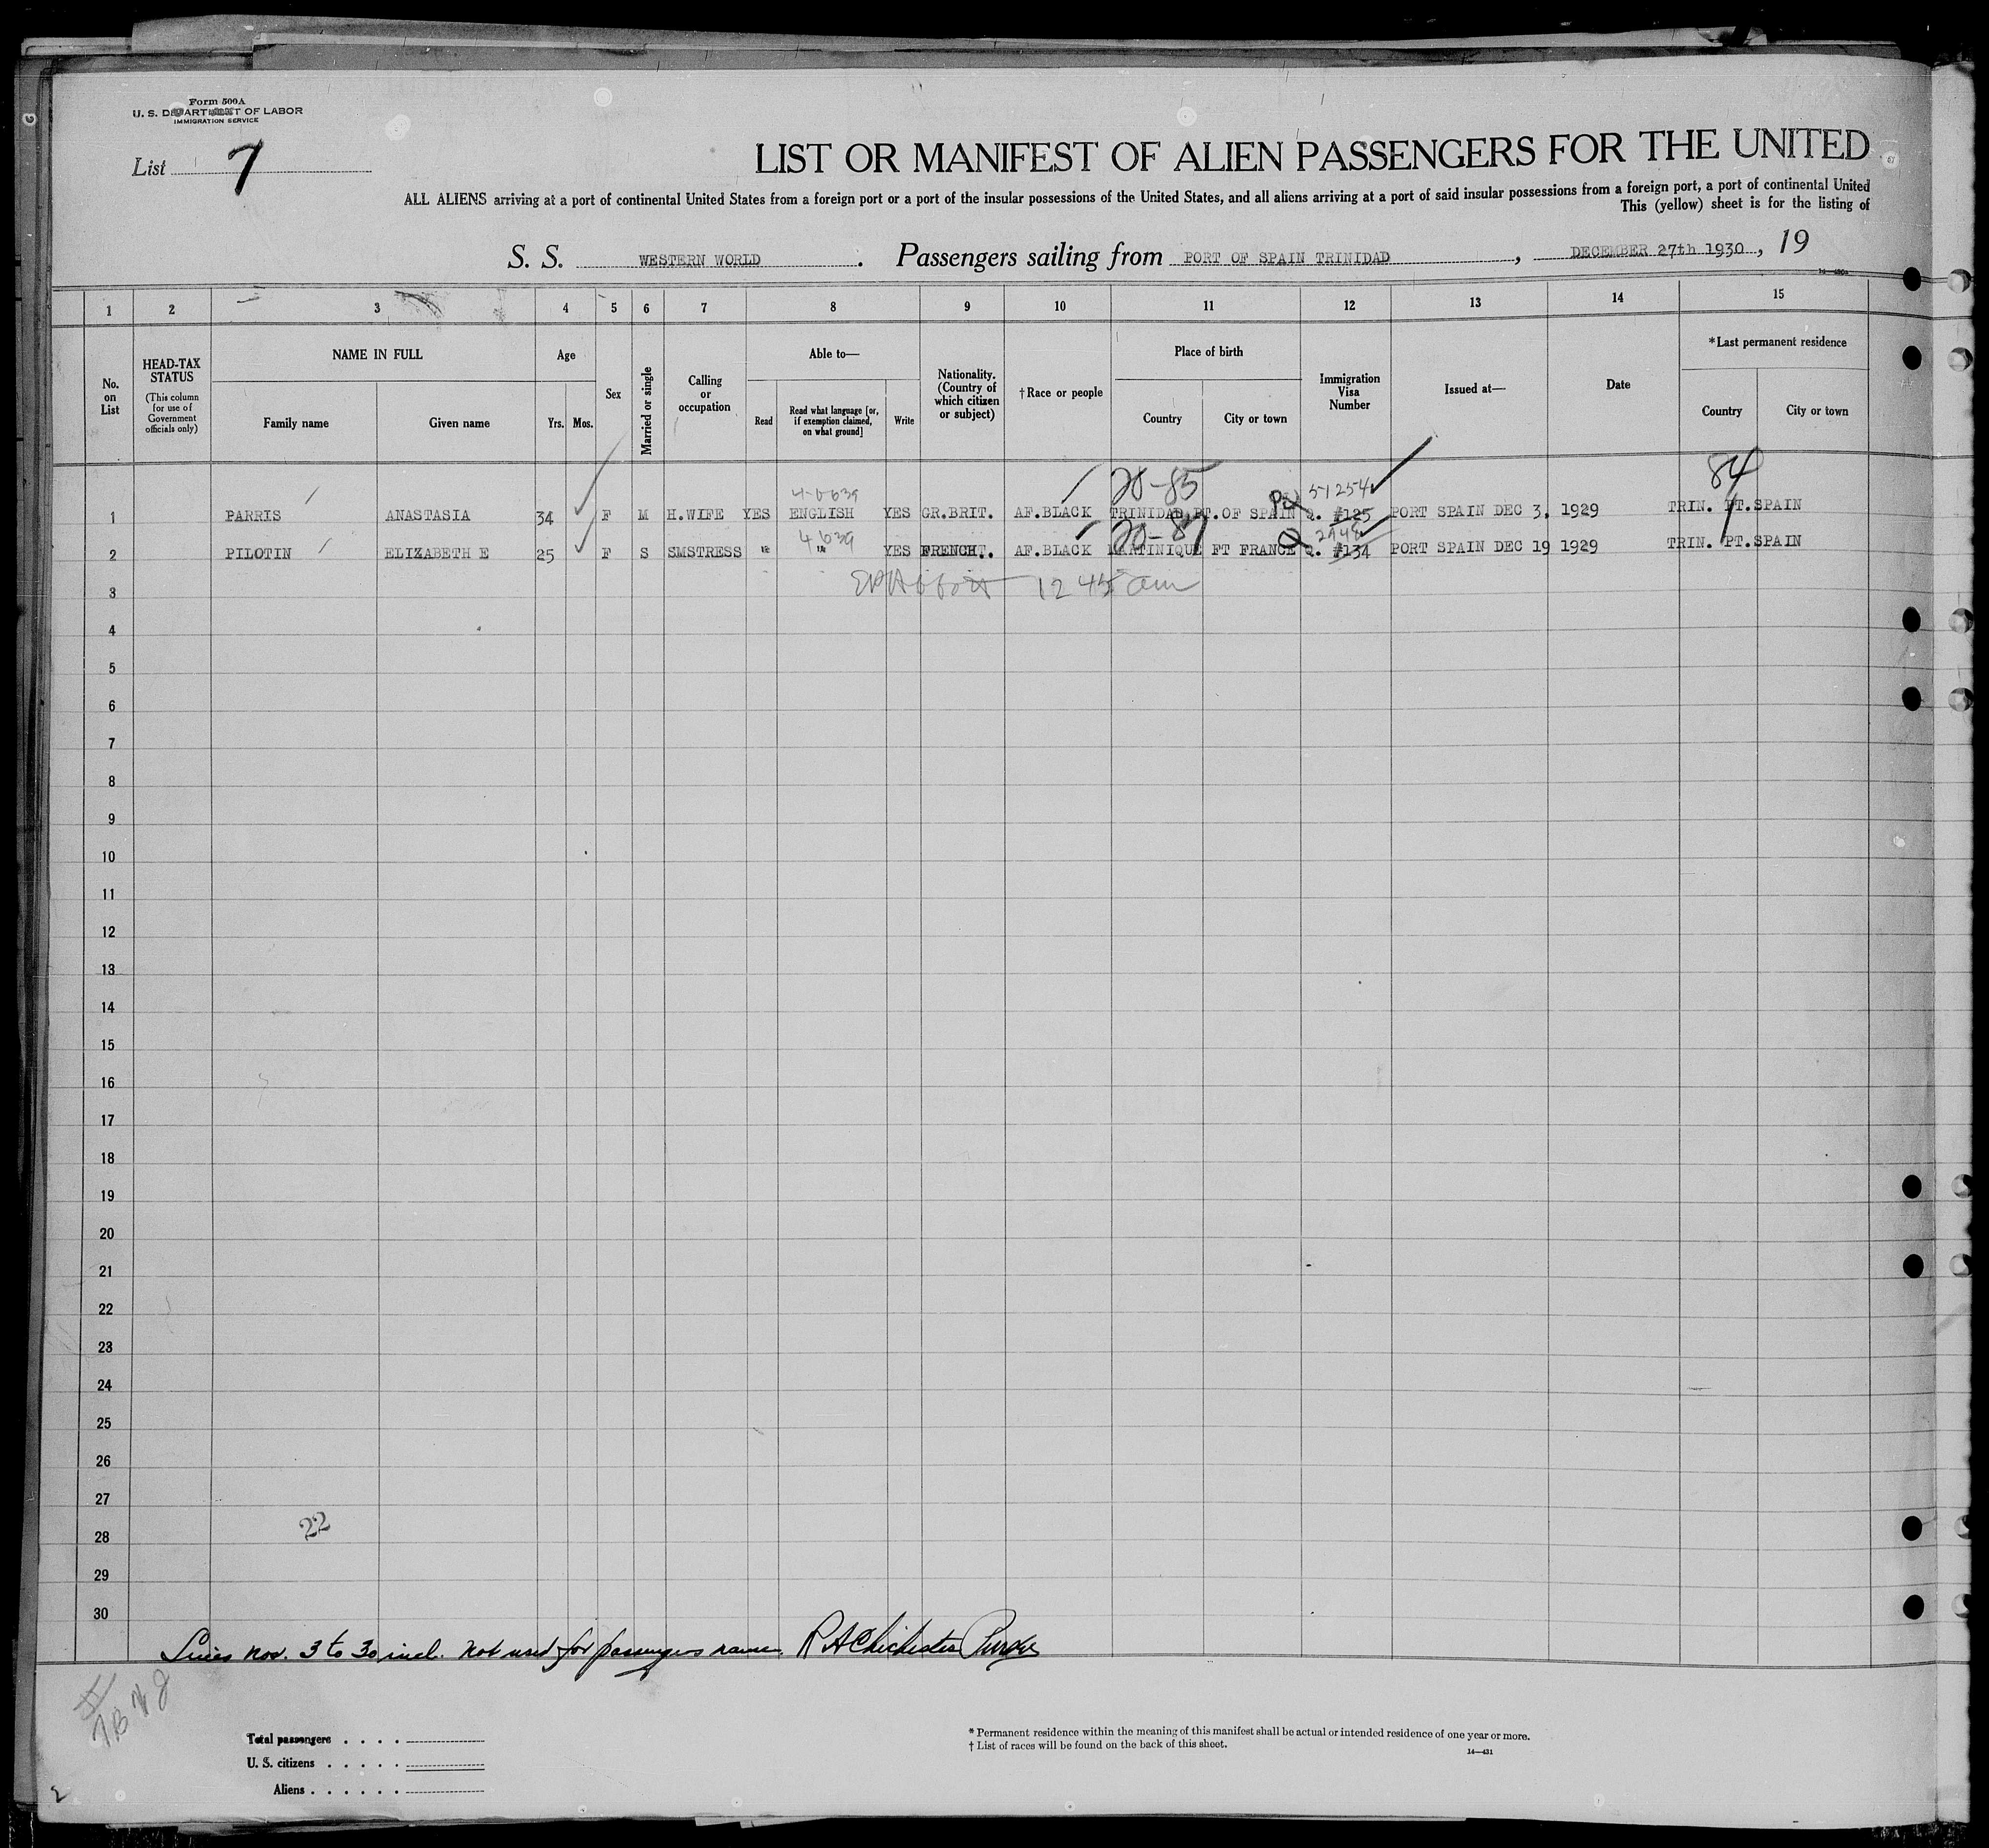 Form 500A
U. S. DEPARTMENT OF LABOR
IMMIGRATION SERVICE
List 7
LIST OR MANIFEST OF ALIEN PASSENGERS FOR THE UNITED
ALL ALIENS arriving at a port of continental United States from a foreign port or a port of the insular possessions of the United States, and all aliens arriving at a port of said insular possessions from a foreign port, a port of continental United
This (yellow) sheet is for the listing of
S. S. WESTERN WORLD . Passengers sailing from PORT OF SPAIN TRINIDAD , DECEMBER 27th 1930 , 19
1 2 3 4 5 6 7 8 9 10 11 12 13 14 15
No. on List
HEAD-TAX STATUS
(This column for use of Government officials only)
NAME IN FULL
Family name Given name
Age
Yrs. Mos.
Sex
Married or single
Calling or occupation
Able to—
Read
Read what language [or, if exemption claimed, on what ground]
Write
Nationality. (Country of which citizen or subject)
†Race or people
Place of birth
Country City or town
Immigration Visa Number
Issued at—
Date
*Last permanent residence
Country City or town
20-85 51254 84
1 PARRIS ANASTASIA 34 F M H.WIFE YES ENGLISH YES GR.BRIT. AF.BLACK TRINIDAD PT.OF SPAIN Q. #125 PORT SPAIN DEC 3, 1929 TRIN. PT.SPAIN
2 PILOTIN ELIZABETH E 25 F S SMSTRESS " " YES FRENCH. AF.BLACK MARTINIQUE FT FRANCE Q. #134 PORT SPAIN DEC 19 1929 TRIN. PT.SPAIN
3 12 45 am
4
5
6
7
8
9
10
11
12
13
14
15
16
17
18
19
20
21
22
23
24
25
26
27
28 22
29
30
Lines nos. 3 to 30 incl. not used for passengers names. R A Chichester Purser
Total passengers
U. S. citizens
Aliens
* Permanent residence within the meaning of this manifest shall be actual or intended residence of one year or more.
† List of races will be found on the back of this sheet.
14—431